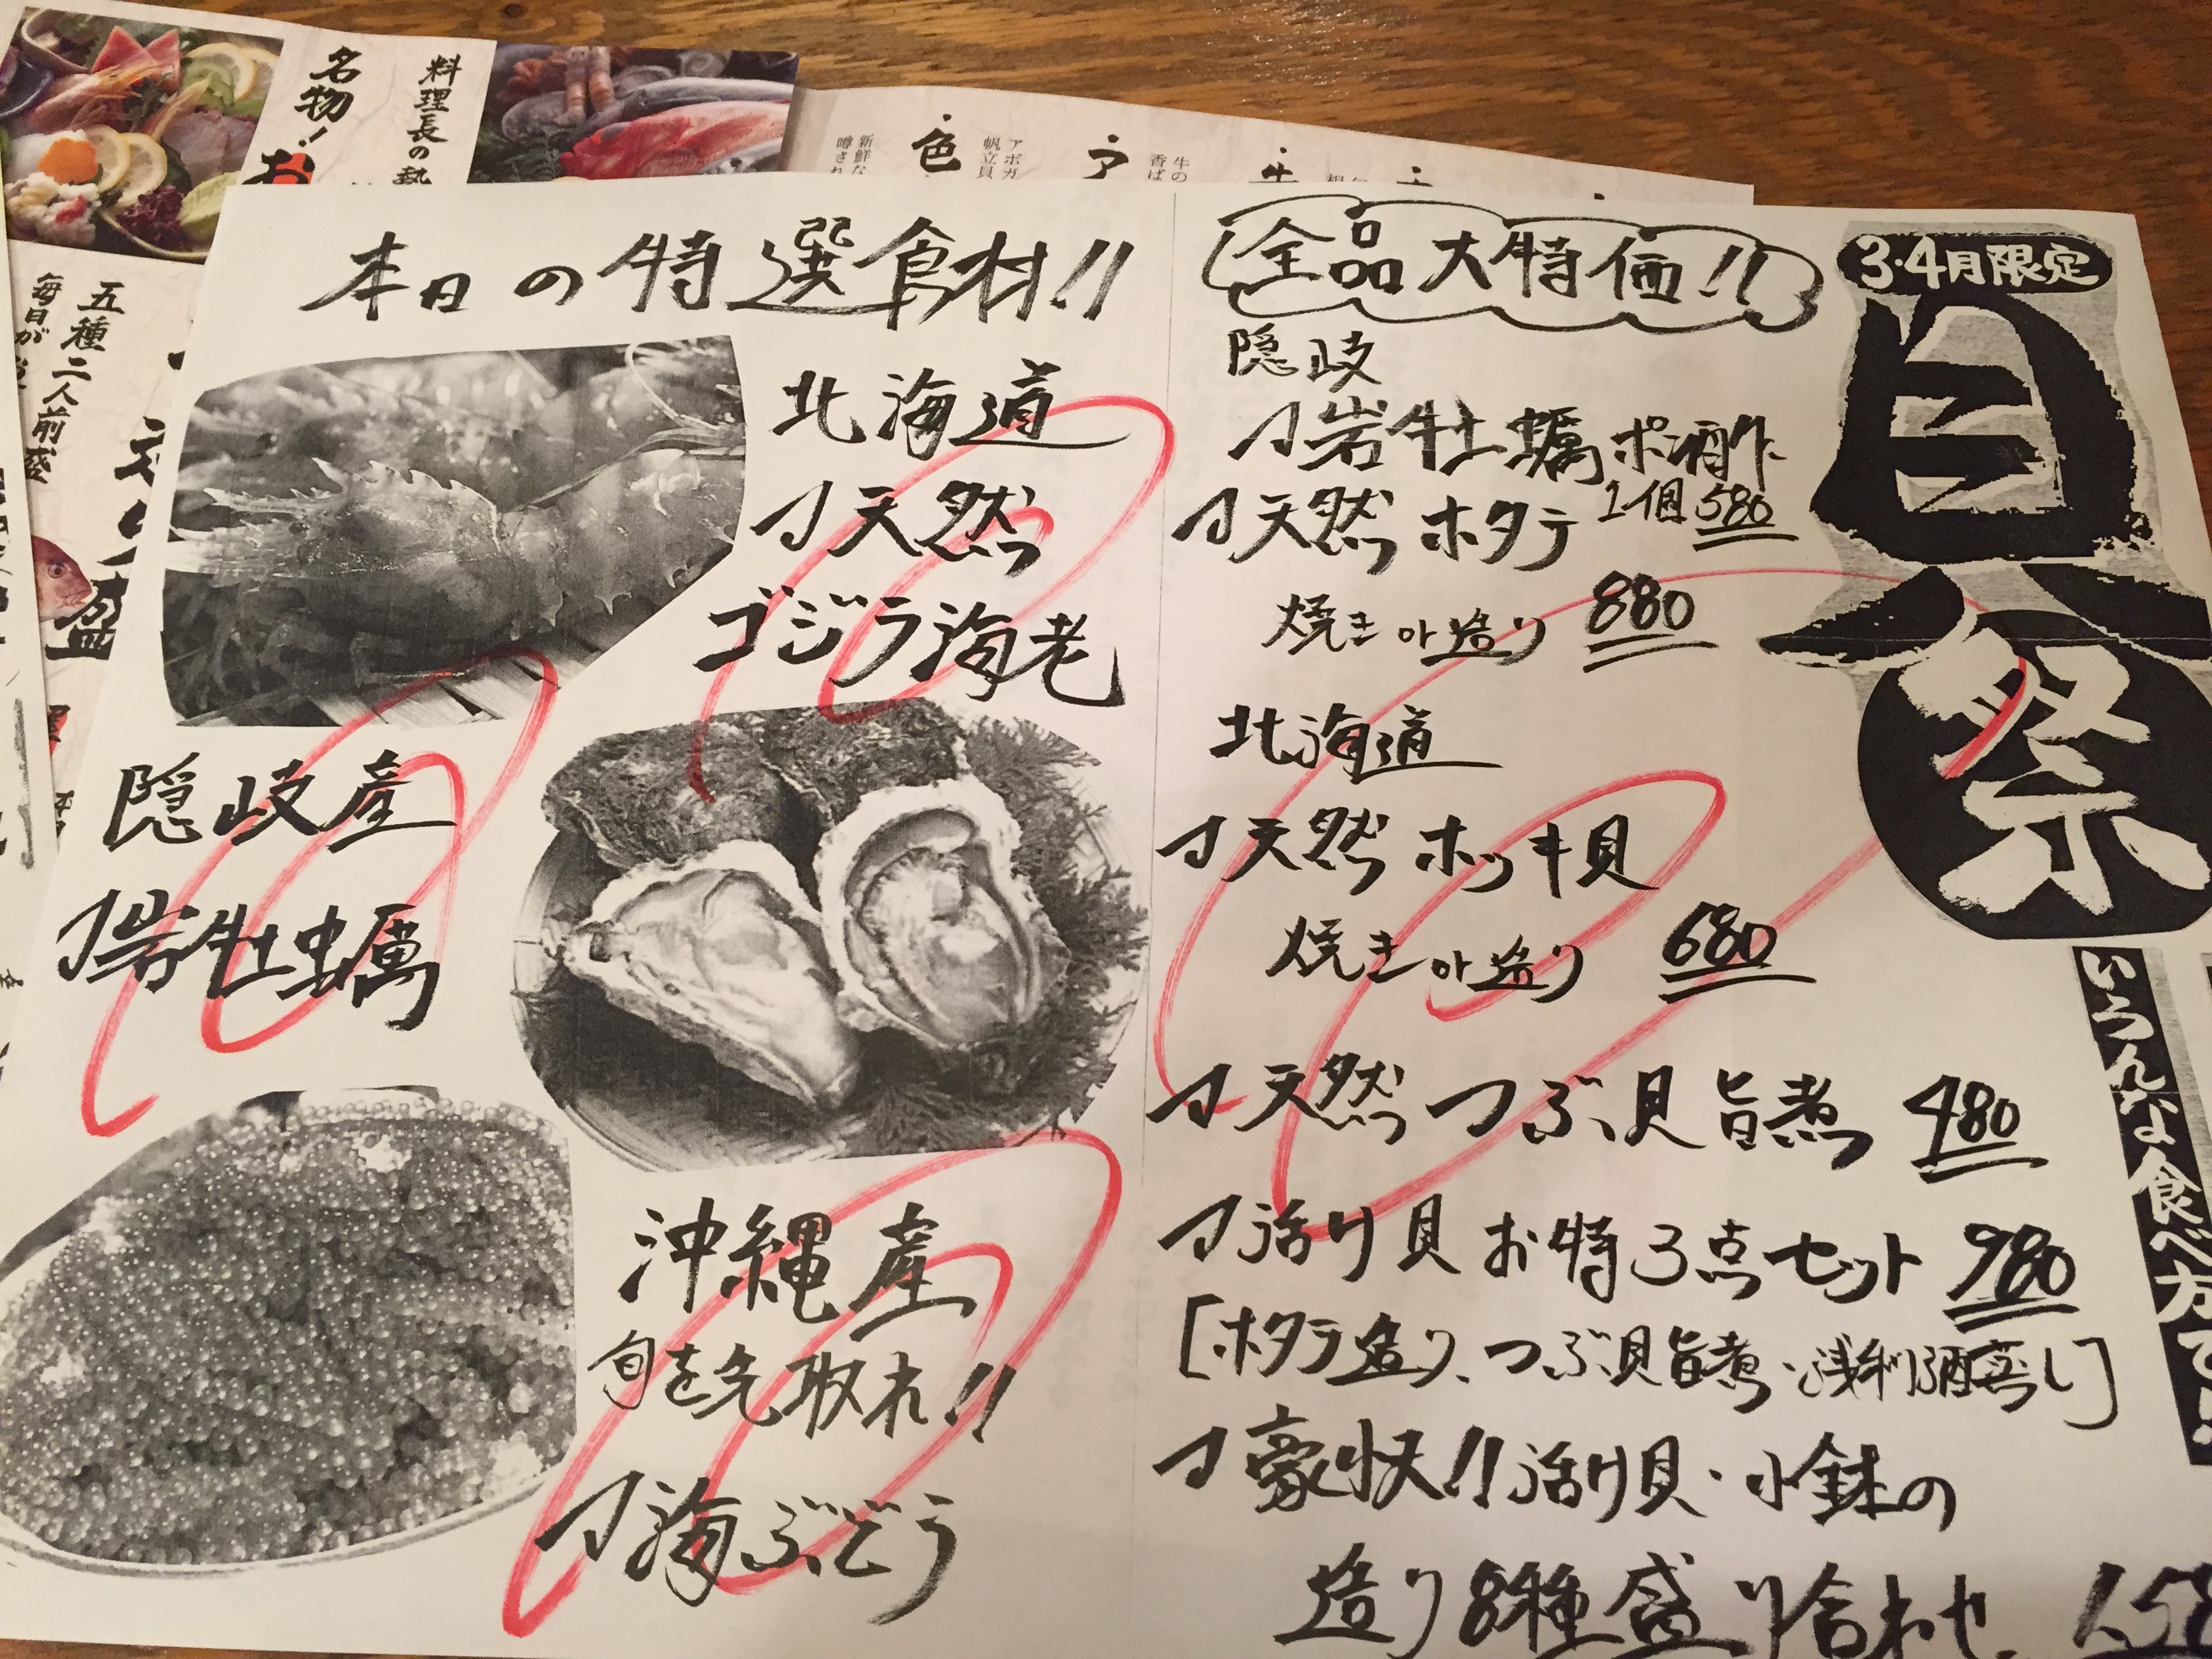 名物!
料理長の
五種二人前盛
毎日が
盛
色
ア
牛
新鮮な
噂さ
アボガ
帆立貝
牛の
香ば
本日の特選食材!!
北海道
天然
ゴジラ海老
隠岐産
岩牡蠣
沖縄産
旬を先取れ!!
海ぶどう
全品大特価!!
隠岐
岩牡蠣 ポン酢
1個 580
天然 ホタテ
焼き or 造り 880
北海道
天然 ホッキ貝
焼き or 造り 680
天然 つぶ貝旨煮 480
活け貝 お特3点セット 980
[ホタテ造り、つぶ貝旨煮・浅利酒蒸し]
豪快!!活け貝・小鉢の
造り8種盛り合わせ
3・4月限定
貝祭
いろんな食べ方で